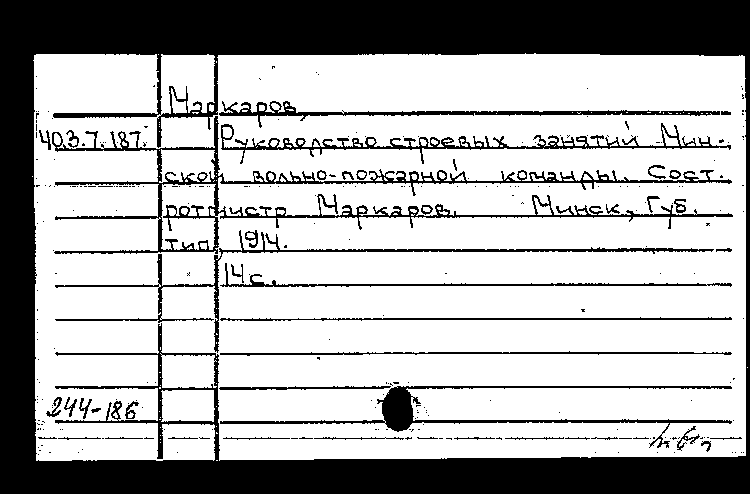 Маркаров,
40.3.7.187. Руководство строевых занятий Мин-
ской вольно-пожарной команды. Сост.
ротмистр Маркаров. Минск, Губ.
тип, 1914.
14с.
244-186